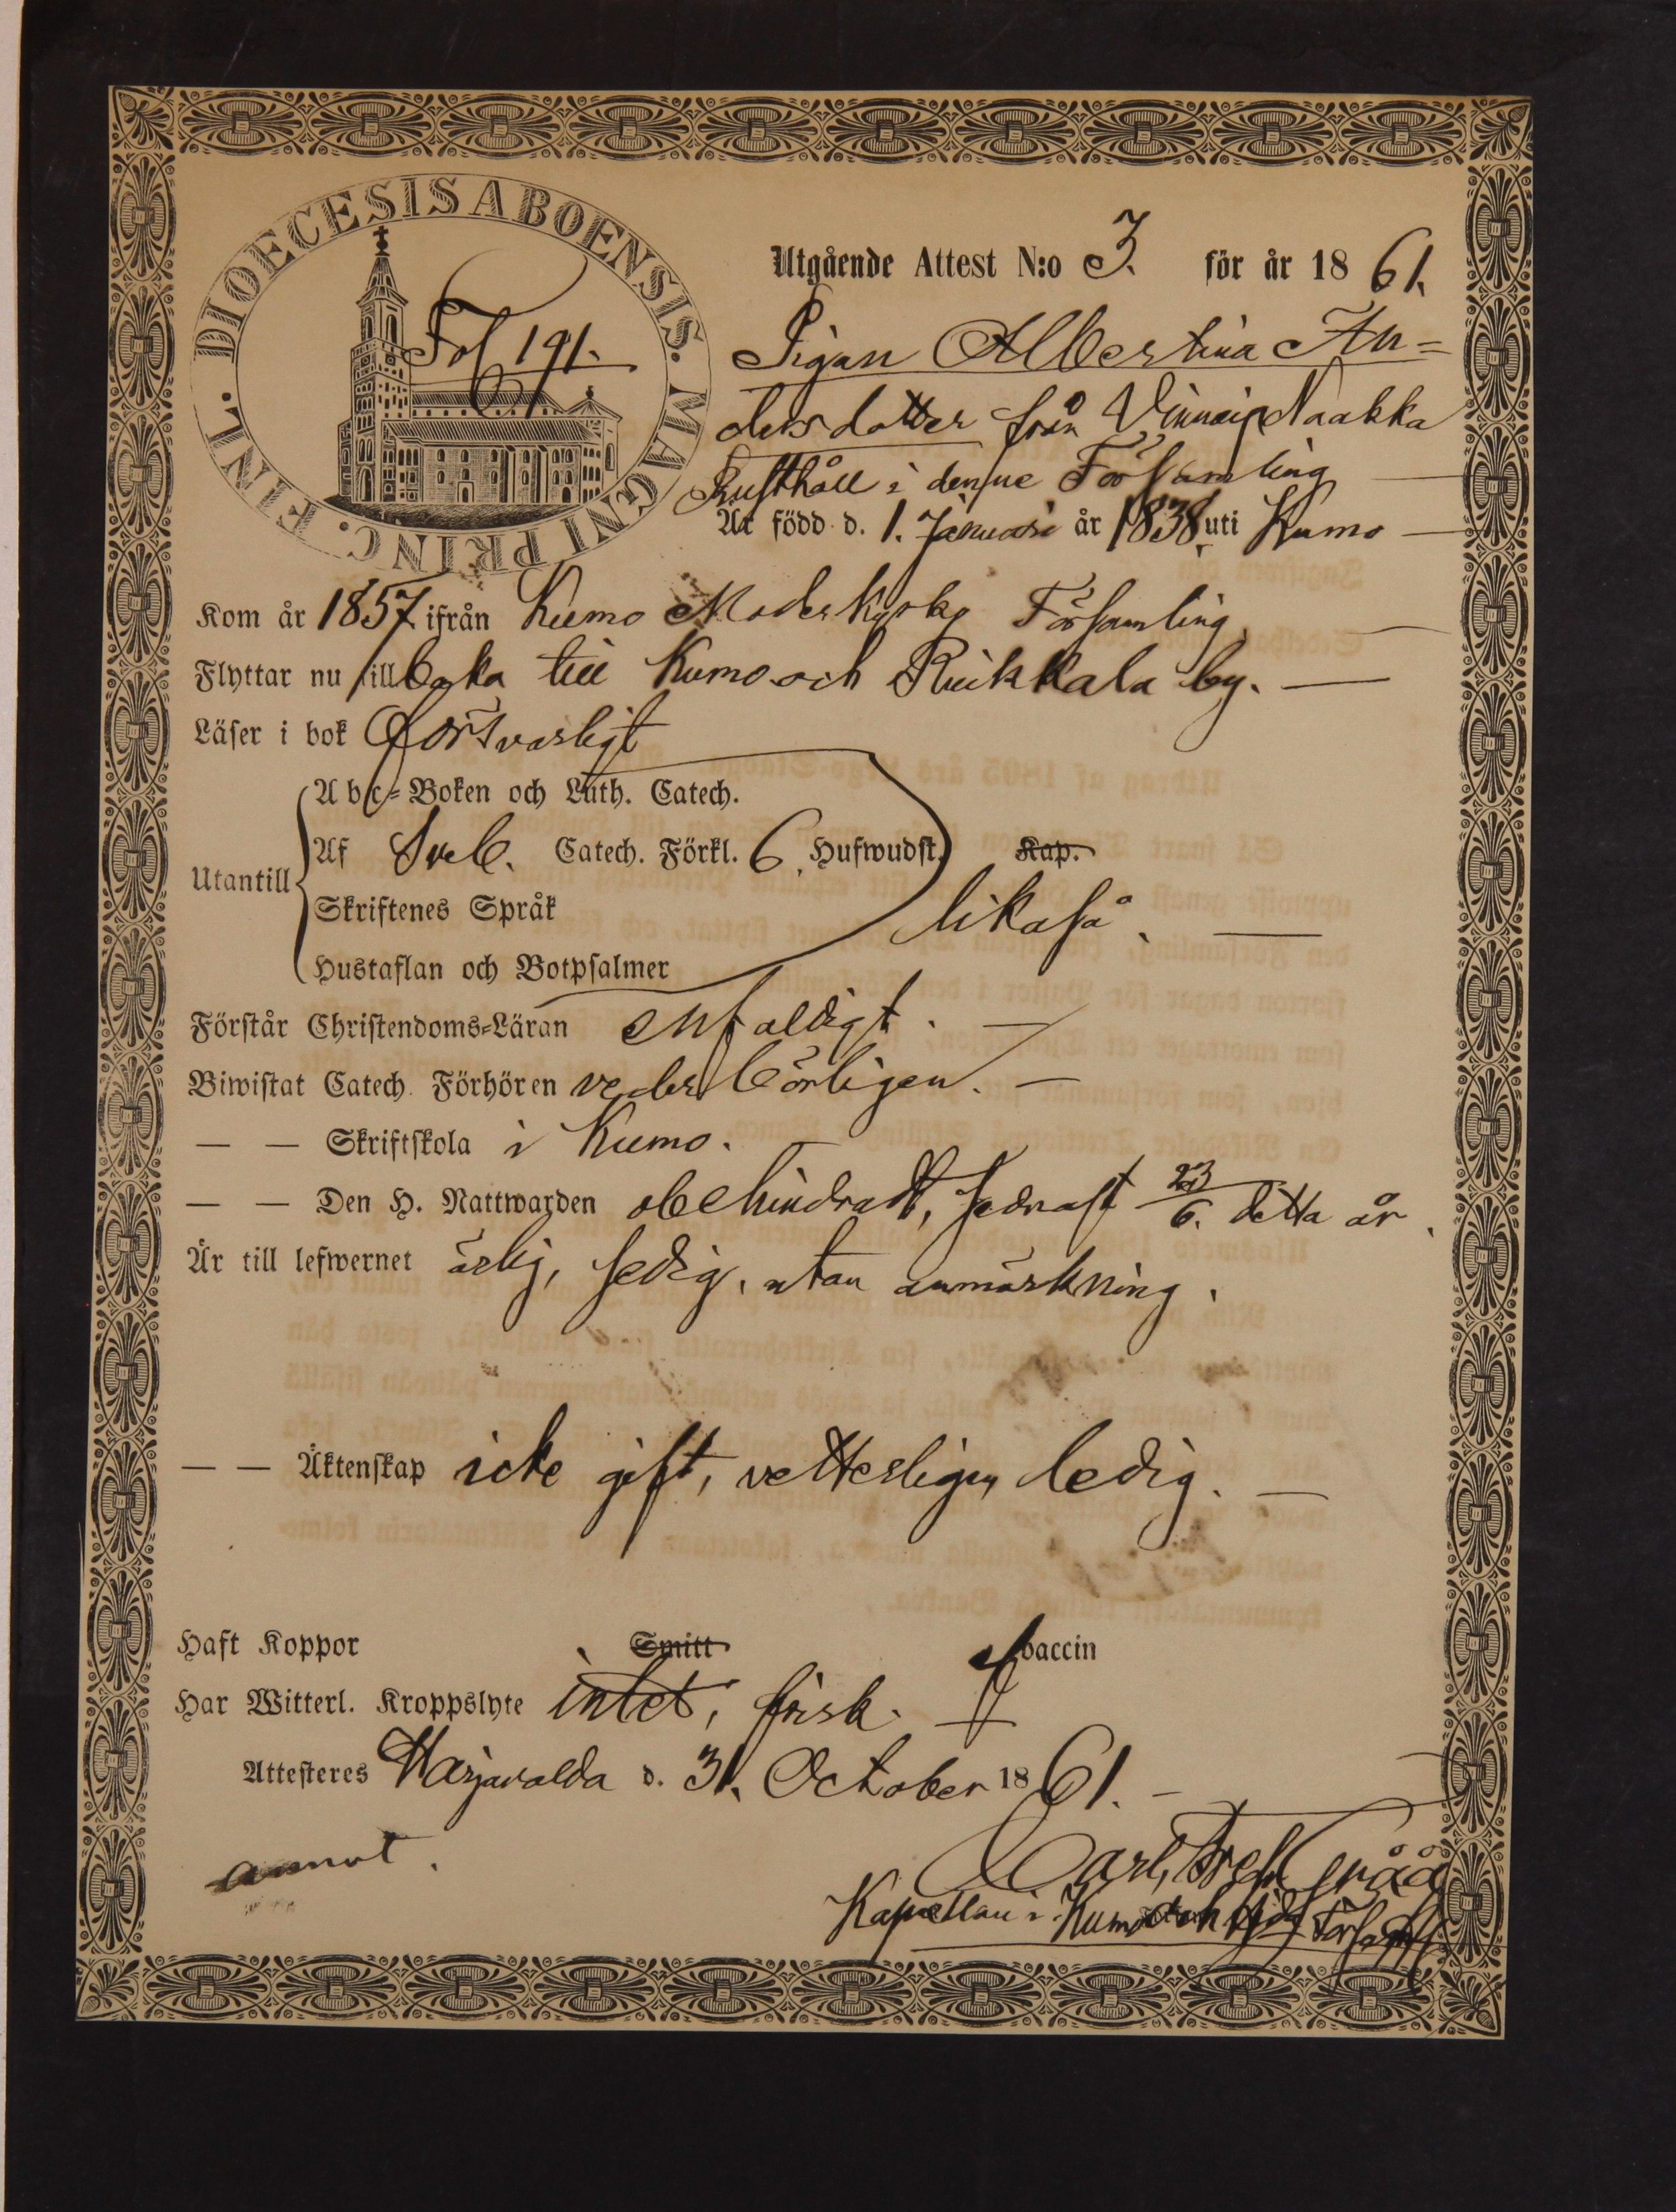 DIOECESIS ABOENSIS. MAGNI PRINC. FINL.
Fol 191.
Utgående Attest N:o 3. för år 1861.
Pigan Albertina An=
dersdotter från Vinnais Naakka
Rusthåll i denne Församling
Är född d. 1. Januari år 1838 uti Kumo
Kom år 1857 ifrån Kumo Moderkyrko Församling,
Flyttar nu tillbaka till Kumo och Ruikkala by.
Läser i bok försvarligt
Utantill
Abc-Boken och Luth. Catech.
Af Sveb. Catech. Förkl. 6. Hufwudst. Kap.
Skriftenes Språk likaså.
Hustaflan och Botpsalmer
Förstår Christendoms-Läran enfaldigt.
Biwistat Catech. Förhören vederbörligen.
— — Skriftskola i Kumo.
— — Den H. Nattwarden obehindradt, sednast 23/6. detta år.
Är till lefwernet ärlig, sedig, utan anmärkning.
— — Äktenskap icke gift, vetterligen ledig.
Haft Koppor Smitt vaccin
Har Witterl. Kroppslyte intet, frisk.
Attesteres Harjavalda d. 31. October 1861.
annot.
Carl Fredr
Kapellan i Kumo och